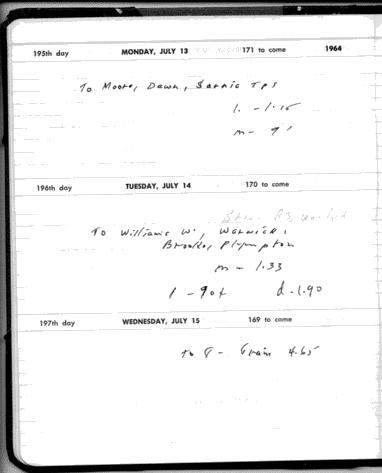 195th day MONDAY, JULY 13 171 to come 1964
To Moore, Dawn, Sarnia Tps
l. - 1.15
m - 9
196th day TUESDAY, JULY 14 170 to come
To Williams W., Warwick,
Brooke, Plympton
m - 1.33
l - 90¢ d. 1.90
197th day WEDNESDAY, JULY 15 169 to come
to T - Train 4.65